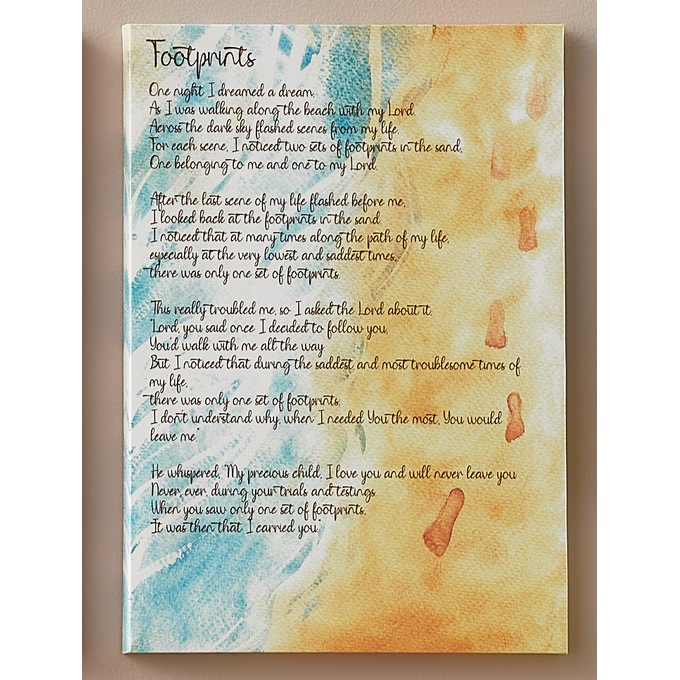 Footprints
One night I dreamed a dream.
As I was walking along the beach with my Lord.
Across the dark sky flashed scenes from my life.
For each scene, I noticed two sets of footprints in the sand,
One belonging to me and one to my Lord.
After the last scene of my life flashed before me,
I looked back at the footprints in the sand.
I noticed that at many times along the path of my life,
especially at the very lowest and saddest times,
there was only one set of footprints.
This really troubled me, so I asked the Lord about it.
"Lord, you said once I decided to follow you,
You'd walk with me all the way.
But I noticed that during the saddest and most troublesome times of
my life,
there was only one set of footprints.
I don't understand why, when I needed You the most, You would
leave me."
He whispered, "My precious child, I love you and will never leave you
Never, ever, during your trials and testings.
When you saw only one set of footprints,
It was then that I carried you."